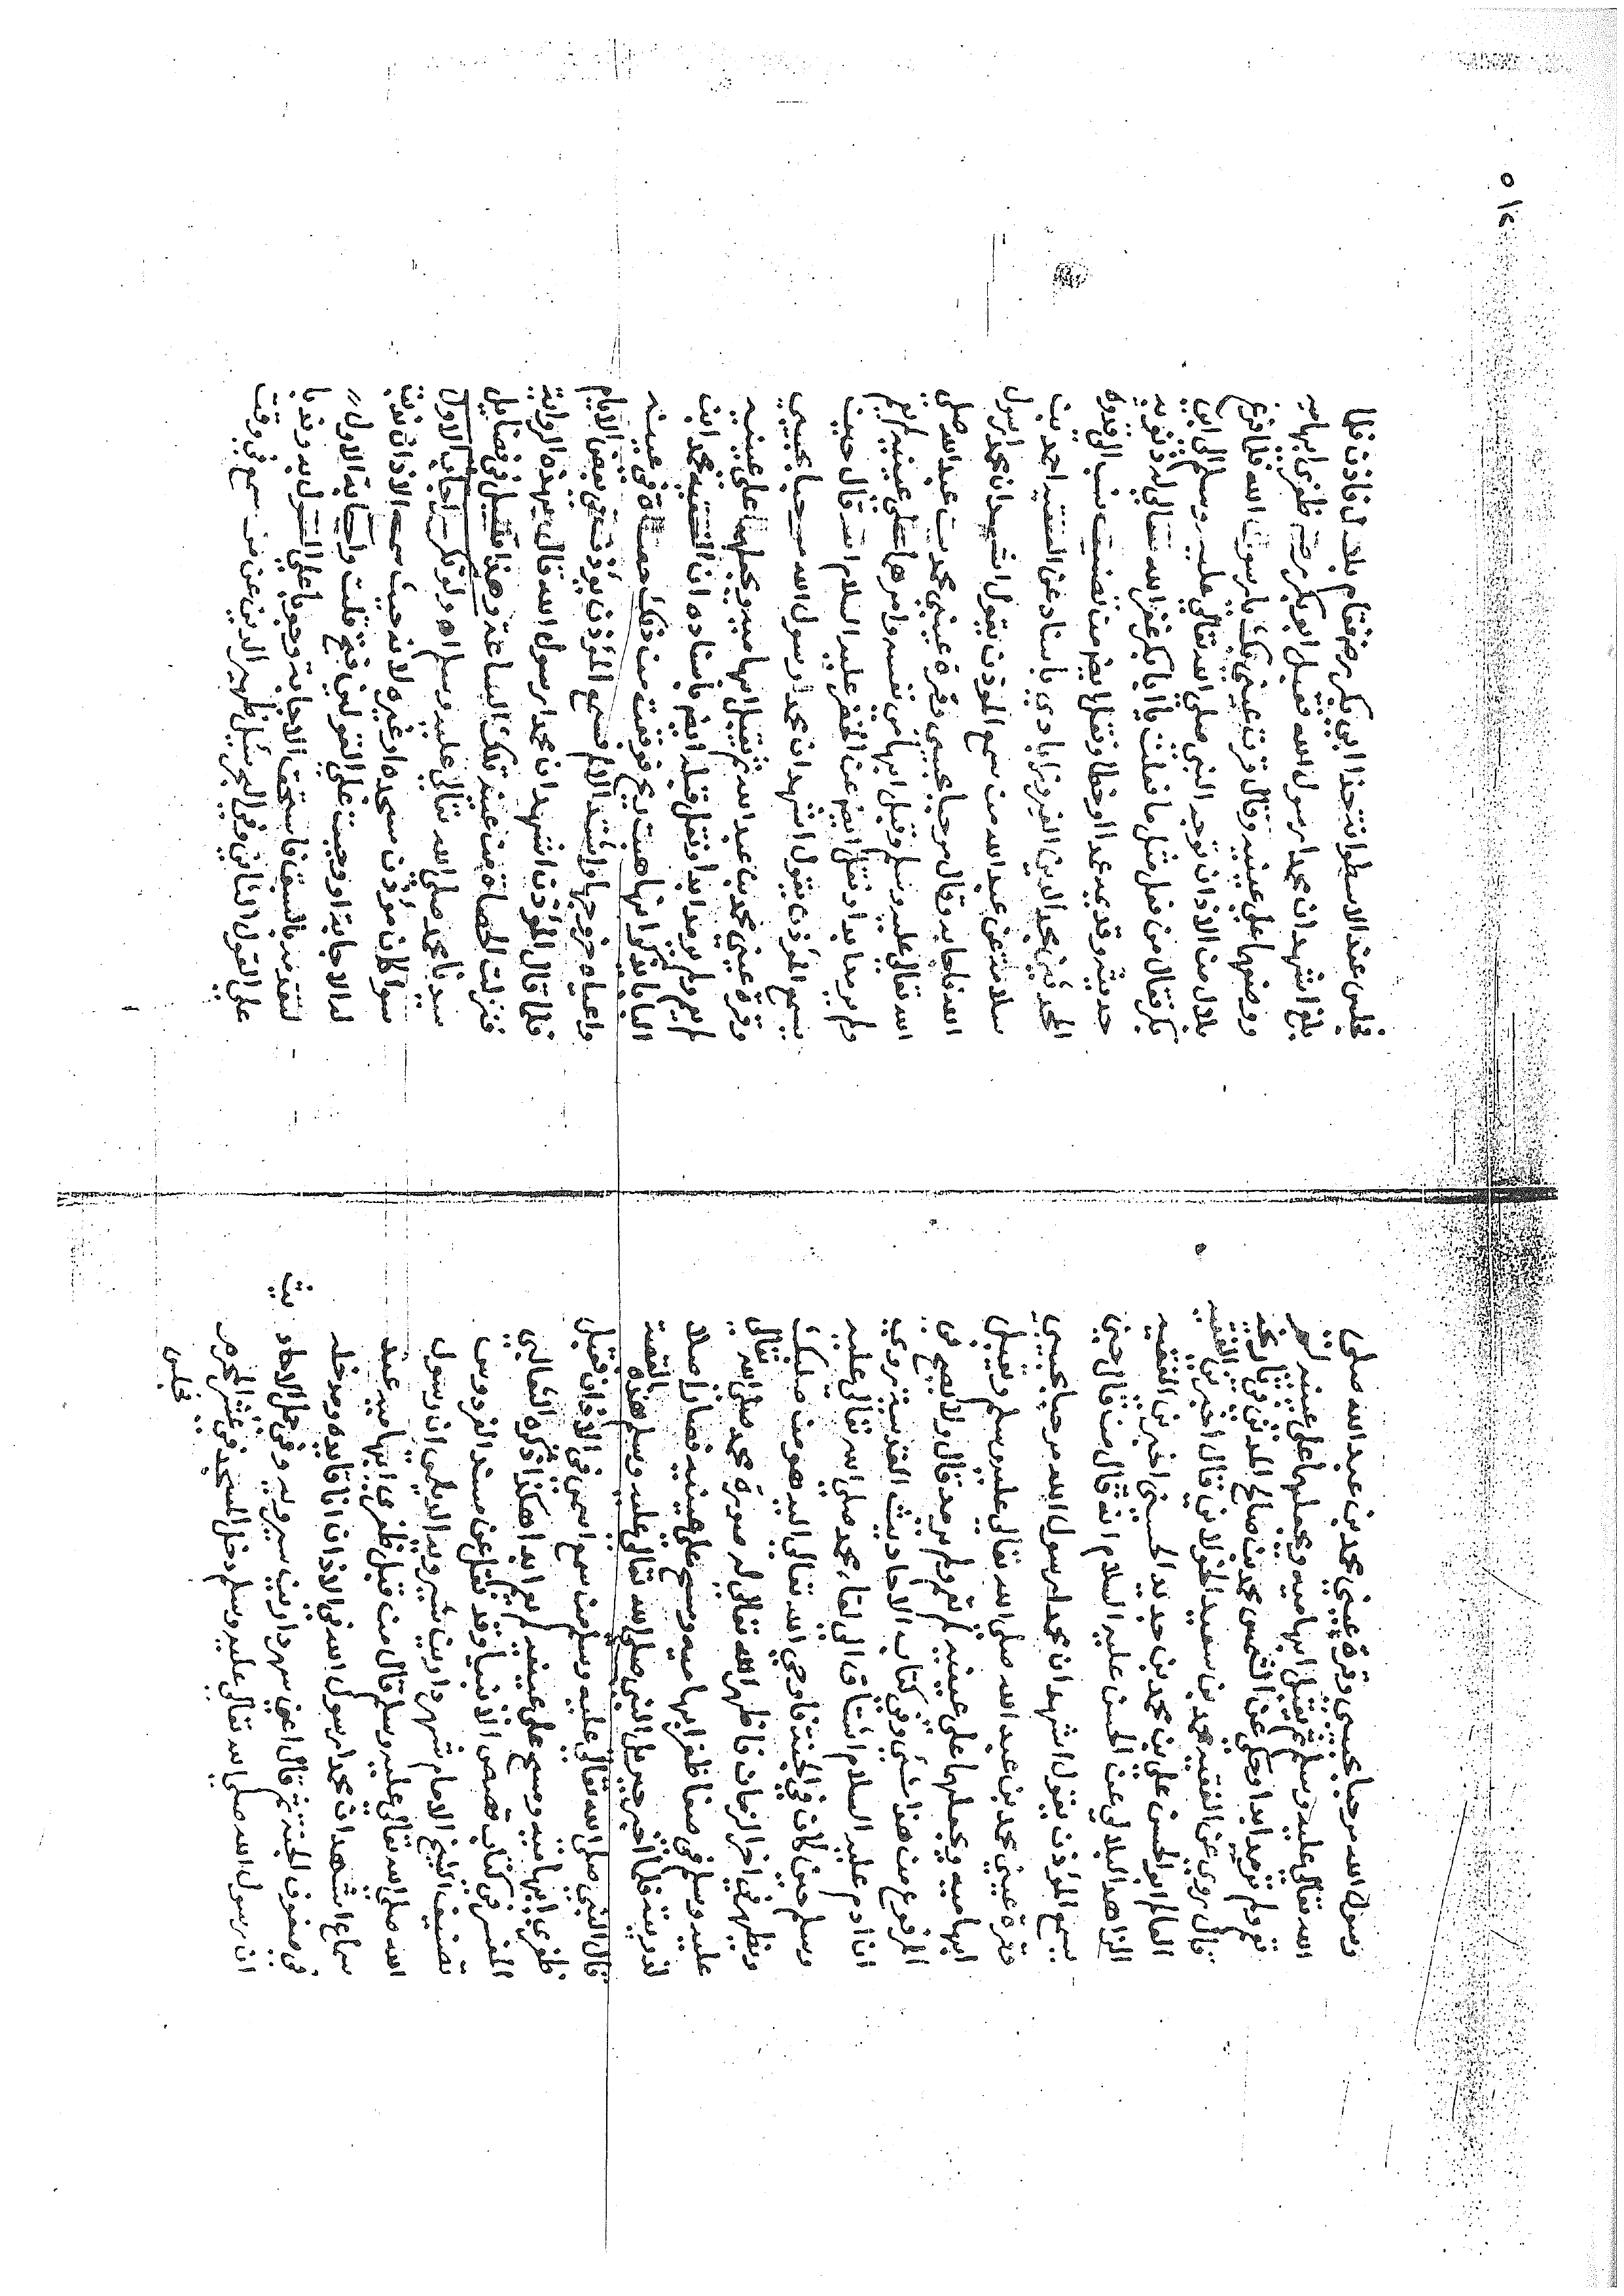 رسول الله مرحبا بحبيبي وقرة عيني محمد بن عبد الله صلى
الله تعالى عليه وسلم ثم يقبل ابهاميه ويجعلهما على عينيه لم
يعم ولم يرمد ابدا وحكى عن الشمس محمد بن صالح المدني في تاريخه
قال روي عن الفقيه محمد بن سعيد الخولاني قال اخبرني الفقيه
العالم ابو الحسن علي بن محمد بن حديد الحسيني اخبرني الفقيه
الزاهد البلالي عن الحسن عليه السلام انه قال من قال حين
يسمع المؤذن يقول اشهد ان محمدا رسول الله مرحبا بحبيبي
وقرة عيني محمد بن عبد الله صلى الله تعالى عليه وسلم ويقبل
ابهاميه ويجعلهما على عينيه لم يعم ولم يرمد قال ولا يصح في
المرفوع من هذا شيء وفي كتاب الاحاديث القدسية روي
ان ادم عليه السلام اشتاق الى لقاء محمد صلى الله تعالى عليه
وسلم حين كان في الجنة فاوحى الله تعالى اليه هو من صلبك
ويظهر في اخر الزمان فاظهر الله تعالى له صورة محمد صلى الله تعالى
عليه وسلم في صفا ظفر ابهاميه ومسح على عينيه فصار اصلا
لذريته فلما اخبر جبريل النبي صلى الله تعالى عليه وسلم بهذه القصة
قال النبي صلى الله تعالى عليه وسلم من سمع اسمي في الاذان فقبل
ظفري ابهاميه ومسح على عينيه لم يعم ابدا هكذا ذكره الثعالبي
المفسر في كتاب قصص الانبيا وقد نقل عن مسند الفردوس
تصنيف الشيخ الامام شهردار بن شيرويه الديلمي ان رسول
الله صلى الله تعالى عليه وسلم قال من قبل ظفري ابهاميه عند
سماع اشهد ان محمدا رسول الله في الاذان انا قايده ومدخله
في صفوف الجنة ثم قال اعني شهردار بن شيرويه وفي محل
ان رسول الله صلى الله تعالى عليه وسلم دخل المسجد في عشر المحرم
فجلس
فجلس عند الاسطوانة حذا ابي بكر رضه فقام بلال فاذن فلما
بلغ اشهد ان محمدا رسول الله فقبل ابو بكر رضه ظفري ابهاميه
ووضعهما على عينيه وقال قرت عيني بك يا رسول الله فلما فرغ
بلال من الاذان توجه النبي صلى الله تعالى عليه وسلم الى ابي
بكر فقال من فعل مثل ما فعلت يا ابا بكر غفر الله تعالى له ذنوبه
حديثه وقديمه عمدا او خطا ونقل ايضا من تصنيف الى قدوة
المحدثين مجد الدين الفيروزابادي باسناده عن الفقيه احمد بن
سلامة عن عبد الله من سمع المؤذن يقول اشهد ان محمدا رسول
الله فاجابه وقال مرحبا بحبيبي وقرة عيني محمد بن عبد الله صلى
الله تعالى عليه وسلم وقبل ابهامي نفسه وامرهما على عينيه لم يعم
ولم يرمد ابدا ونقل ايضا عن الخضر عليه السلام انه قال حين
يسمع المؤذن يقول اشهد ان محمدا رسول الله مرحبا بحبيبي
وقرة عيني محمد بن عبد الله ثم يقبل ابهاميه ويجعلهما على عينيه
لم يعم ولم يرمد ابدا ونقل قبله ايضا باسناده ان الفقيه محمد ابن
البابا انه هبت ريح فوقعت منه حصاة في عينه
واعياه خروجها واشتد الالم فسمع المؤذن يؤذن في بعض الايام
فلما قال المؤذن اشهد ان محمدا رسول الله قال بهذه الرواية
فنزلت الحصاة من عينه تلك الساعة وهذا قليل في فضايل
سيدنا محمد صلى الله تعالى عليه وسلم اه ولو تكرر اجاب الاول
سوا كان مؤذن مسجده او غيره لانه حيث سمع الاذان ندب
له الاجابة او وجبت على القولين فتح قلت واجابة الاول
لتقدمه بالسبق فاستحق الاجابة وجوبا على القول به وندبا
على القول الثاني وفي البحر سئل ظهير الدين عن من سمع في وقت